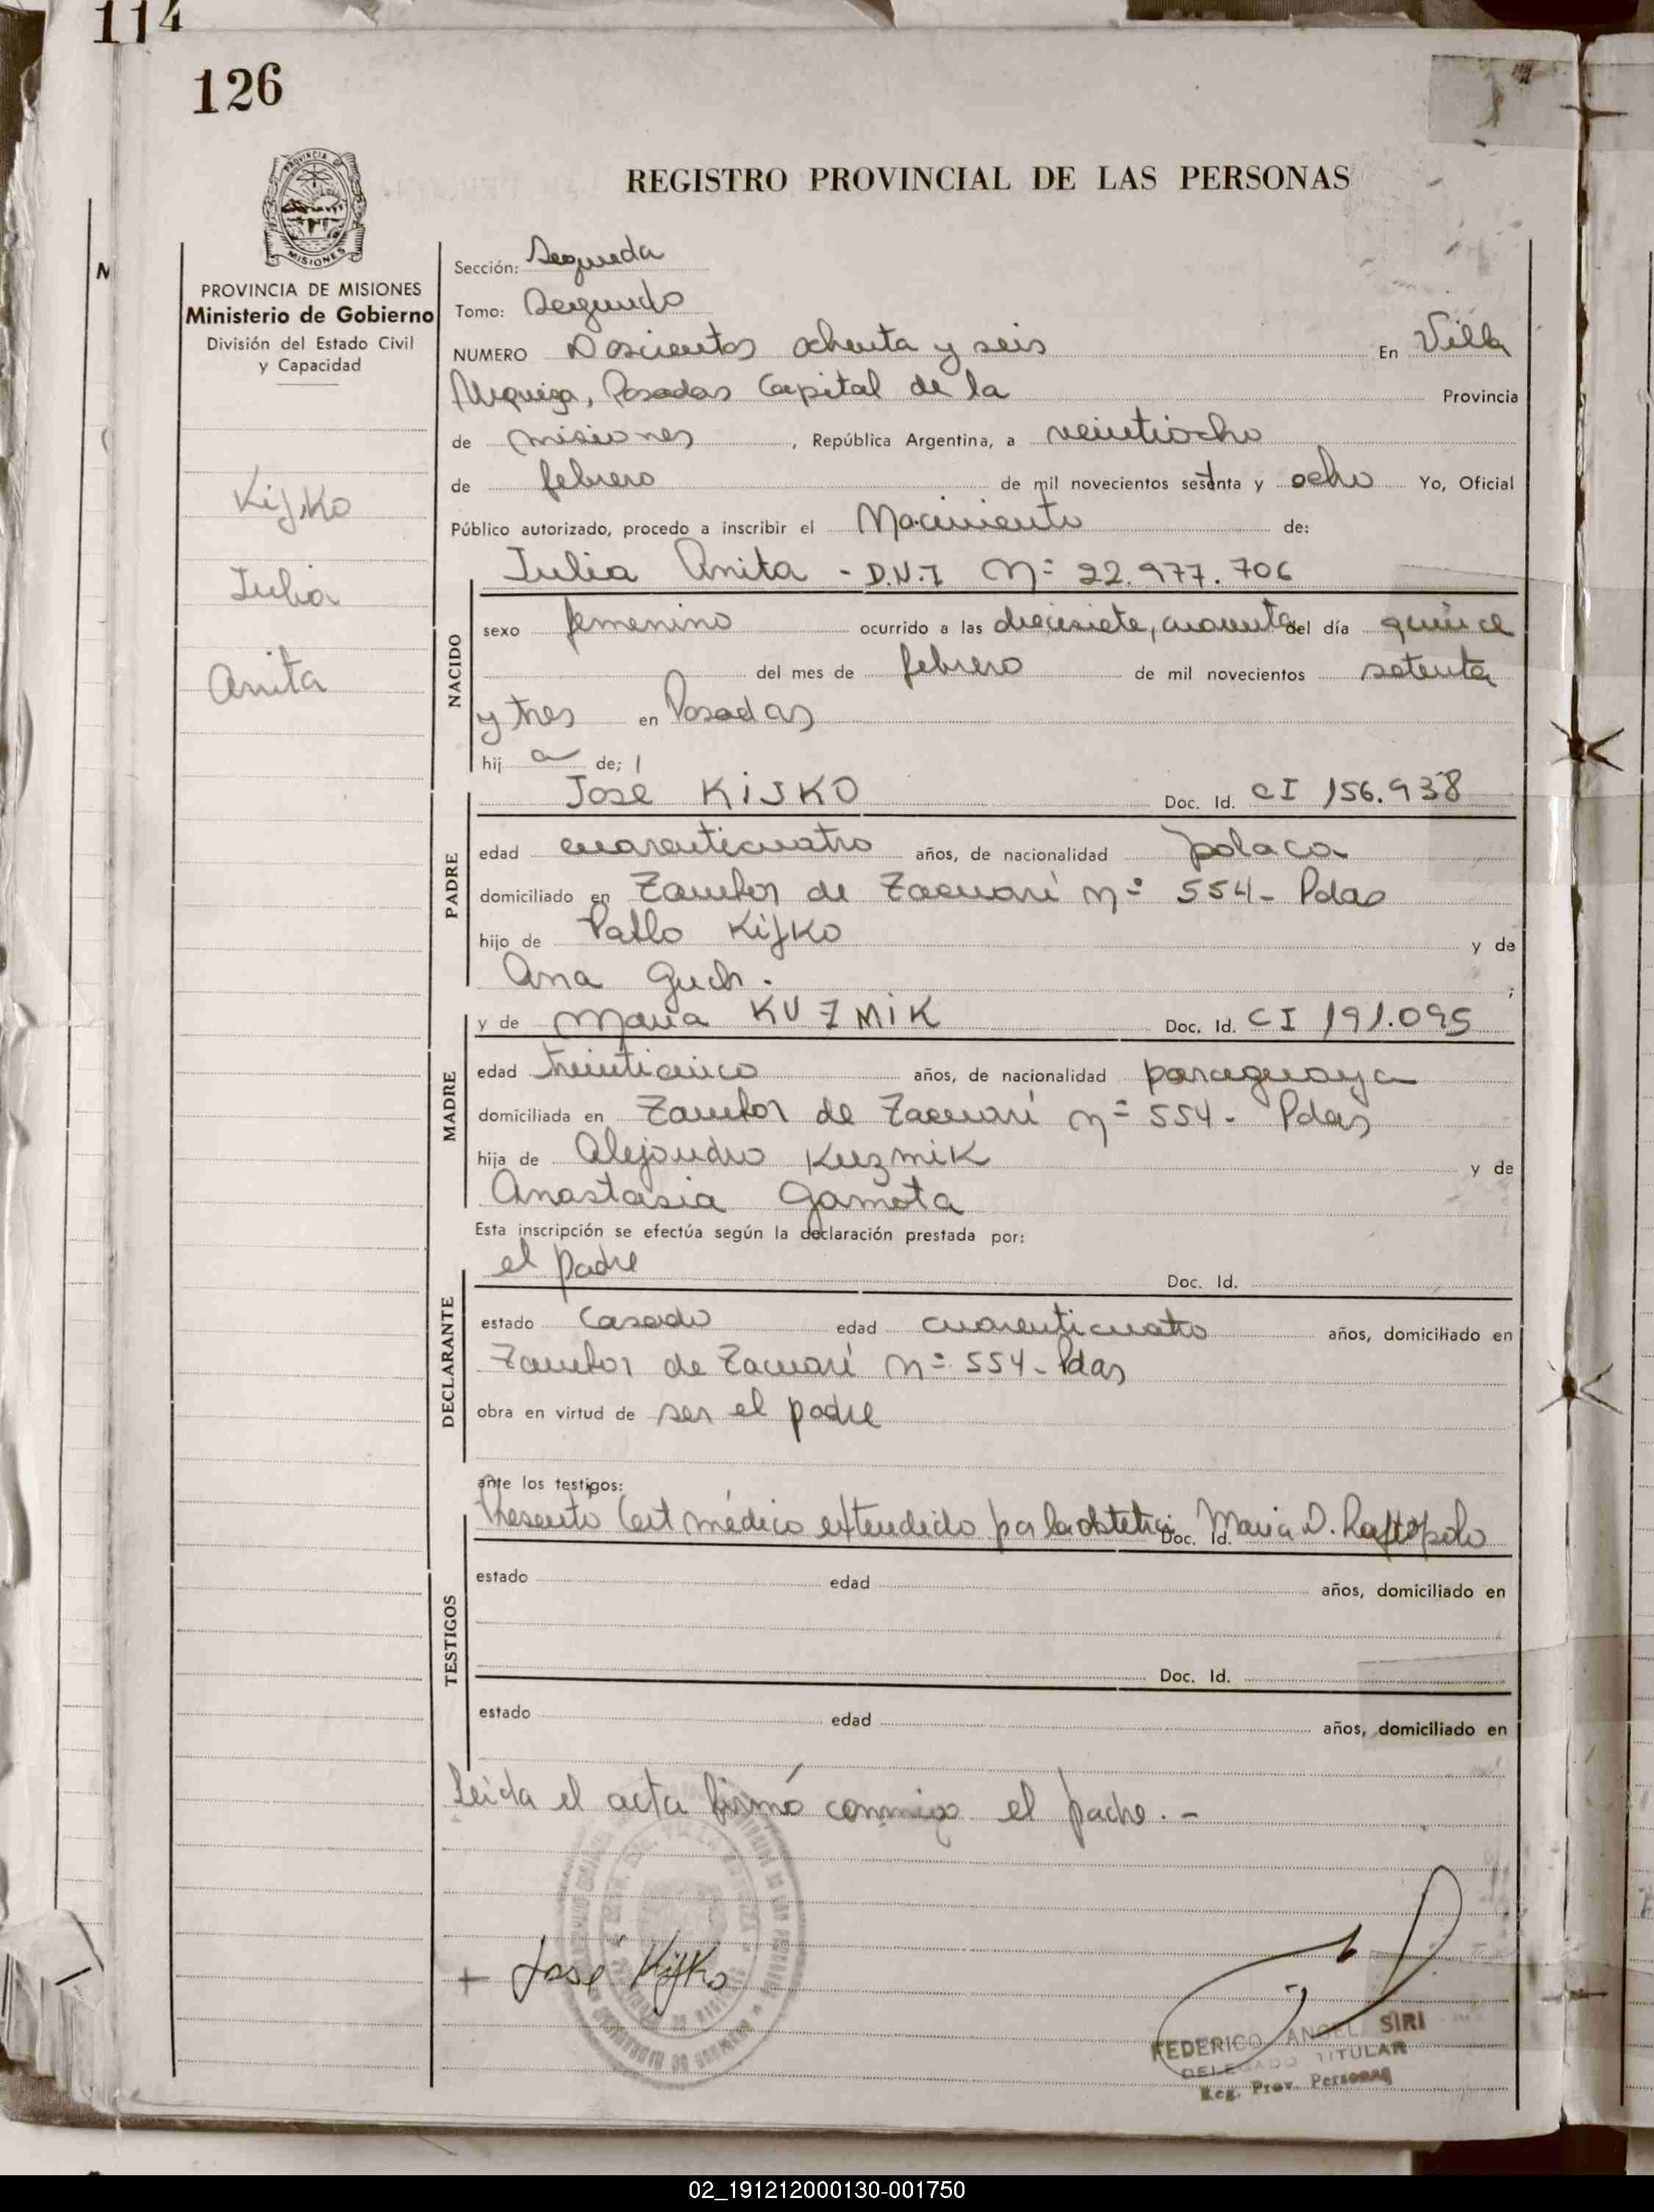 114
126
PROVINCIA DE
MISIONES
REGISTRO PROVINCIAL DE LAS PERSONAS
PROVINCIA DE MISIONES
Ministerio de Gobierno
División del Estado Civil
y Capacidad
Kijko
Julia
Anita
Sección: Segunda
Tomo: Segundo
NUMERO Doscientos ochenta y seis En Villa
Urquiza, Posadas Capital de la Provincia
de misiones, República Argentina, a veintiocho
de febrero de mil novecientos sestnta y ocho Yo, Oficial
Público autorizado, procedo a inscribir el Nacimiento de:
Julia Anita - D.N.I Nº 22.977.706
NACIDO
sexo femenino ocurrido a las diecisiete, cuarenta del día quince
del mes de febrero de mil novecientos setenta
y tres en Posadas
hij a de;
PADRE
José KIJKO Doc. Id. CI 156.938
edad cuarenticuatro años, de nacionalidad polaca
domiciliado en de nº 554- Pdas
hijo de Pablo Kijko y de
Ana Guch.
MADRE
y de Maria KUZMIK Doc. Id. CI 191.095
edad treinticinco años, de nacionalidad paraguaya
domiciliada en de nº 554- Pdas
hija de Alejandro Kuzmik y de
Anastasia Gamota
Esta inscripción se efectúa según la declaración prestada por:
DECLARANTE
el padre Doc. Id.
estado Casado edad cuarenticuatro años, domiciliado en
de nº 554- Pdas
obra en virtud de ser el padre
ante los testigos:
TESTIGOS
Presento Cert médico extendido por la obstetri Maria D. Doc. Id.
estado edad años, domiciliado en
Doc. Id.
estado edad años, domiciliado en
Leida el acta firmó conmigo el padre.-
+ José Kijko
FEDERICO ANGEL SIRI
DELEGADO TITULAR
Reg. Prov. Personas
02_191212000130-001750